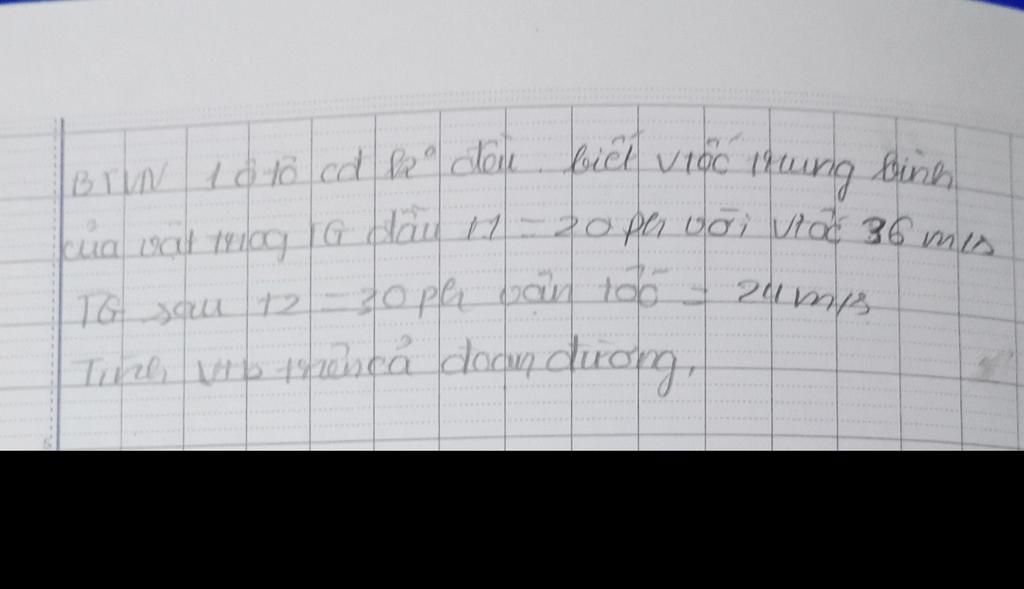 BTVN 1 ô tô cđ 2 đầu. biết vtốc trung bình
của vật trong TG đầu t1 = 20 ph với vtốc 36 m/s
TG sau t2 = 30 ph vận tốc = 24 m/s
Tính vtb trên cả đoạn đường.